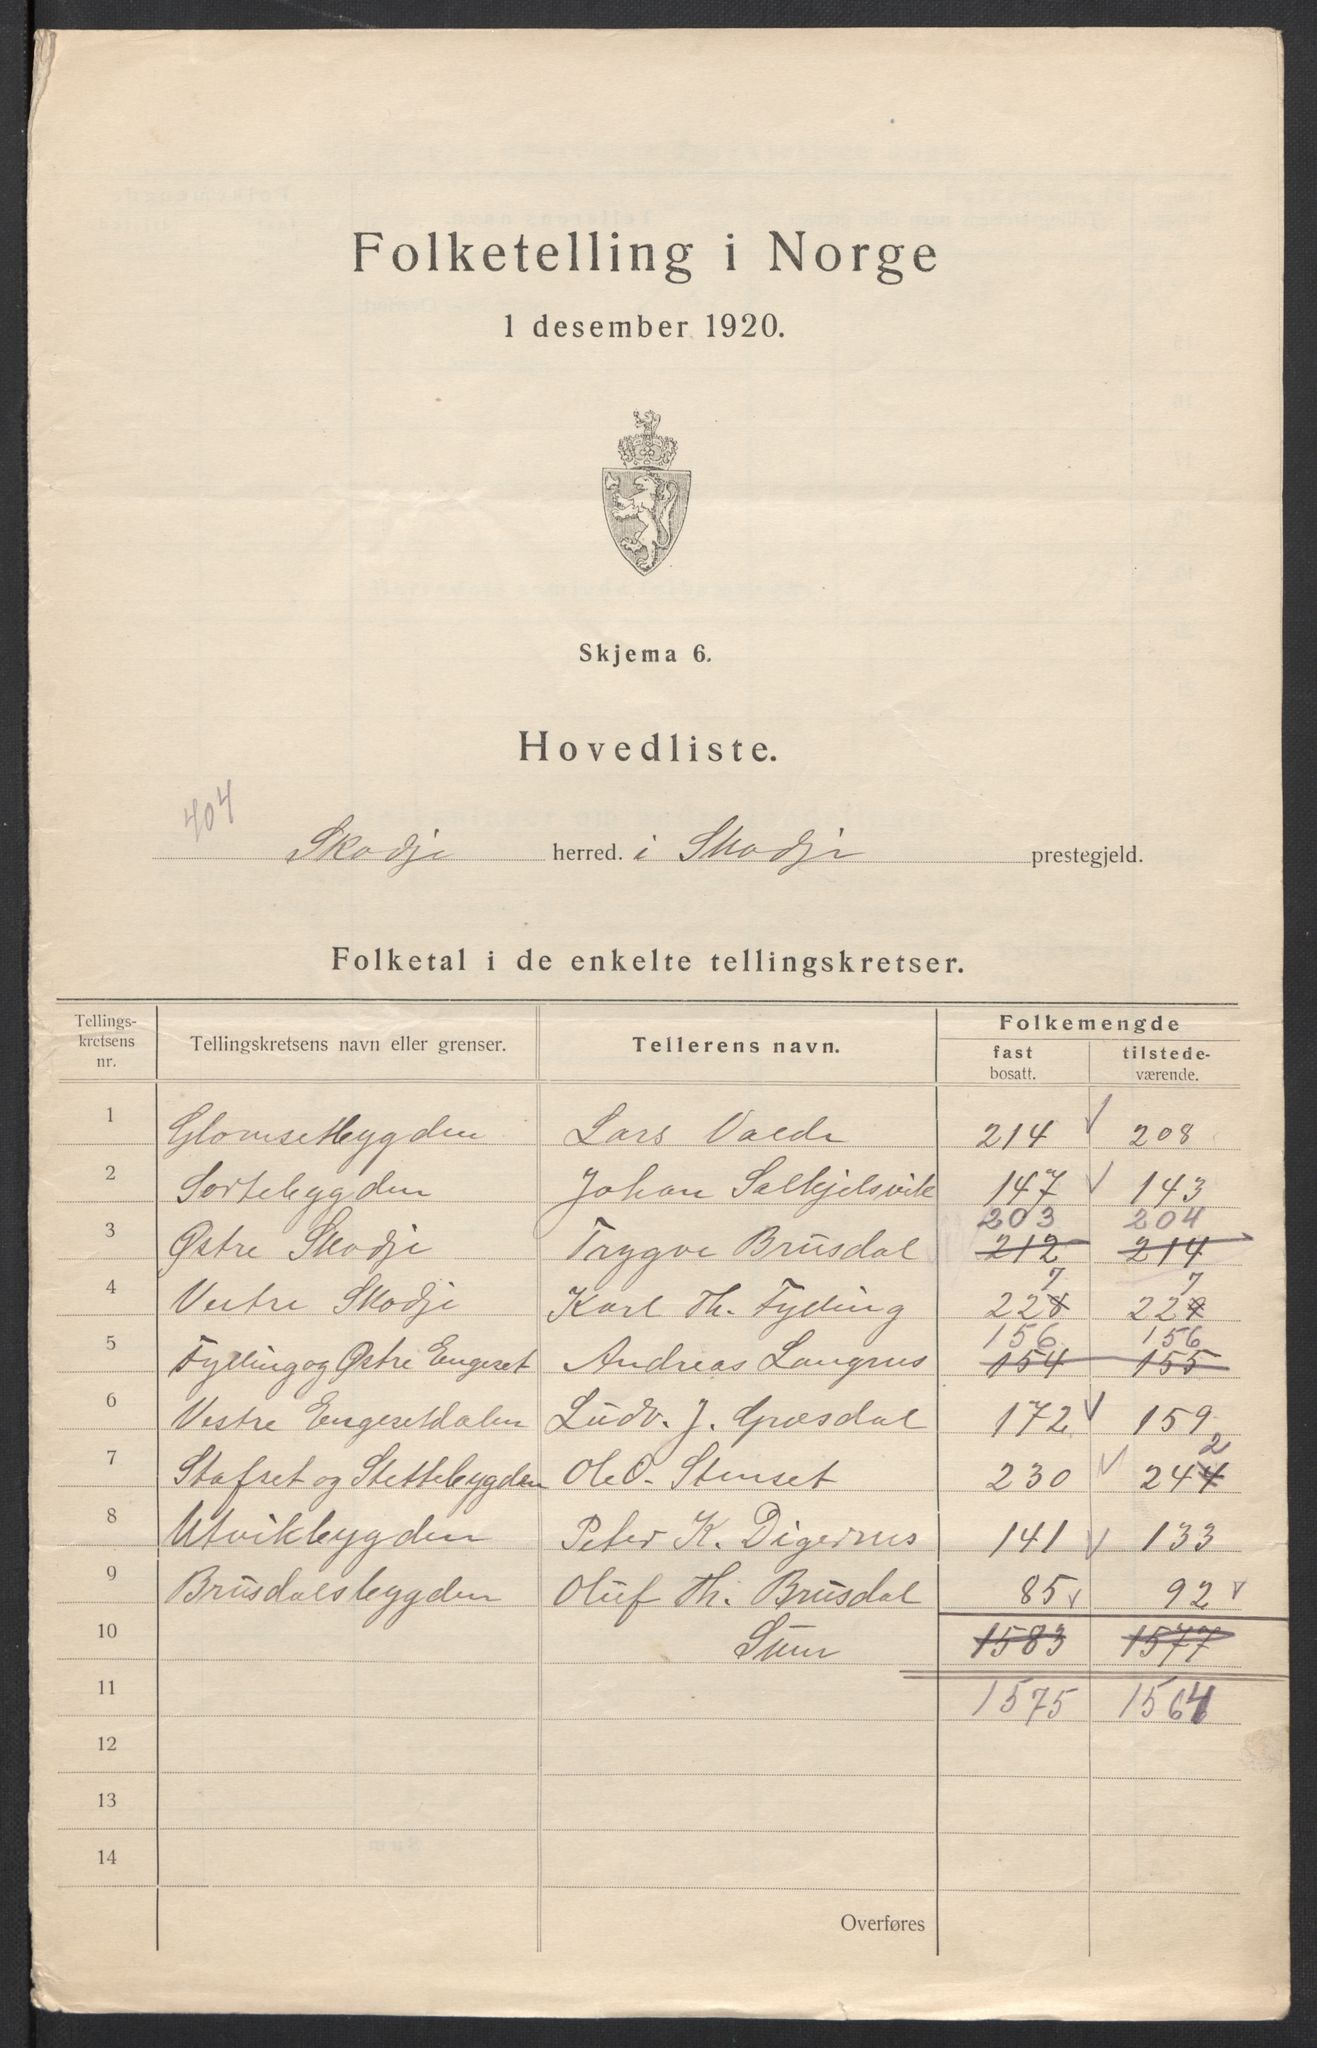 Folketelling i Norge
1 desember 1920.
Skjema 6.
Hovedliste.
404
Skodje herred. i Skodje prestegjeld.
Folketal i de enkelte tellingskretser.
Tellings-kretsens nr. Tellingskretsens navn eller grenser. Tellerens navn. Folkemengde
fast bosatt. tilstede-værende.
1 Glomsetbygden Lars Valde 214 208
2 Sortebygden Johan Solkjelsvik 147 143
203 204
3 Østre Skodje Trygve Brusdal 212 214
7 7
4 Vestre Skodje Karl Th. Fylling 228 229
156 156
5 Fylling og Østre Engeset Andreas Langnes 154 155
6 Vestre Engesetdalen Ludv. J. Græsdal 172 159
2
7 Stafset og Stettebygden Ole O. Stenset 230 244
8 Utvikbygden Peter K. Digernes 141 133
9 Brusdalsbygden Oluf Th. Brusdal 85 92
10 Sum 1583 1577
11 1575 1564
12
13
14
Overføres